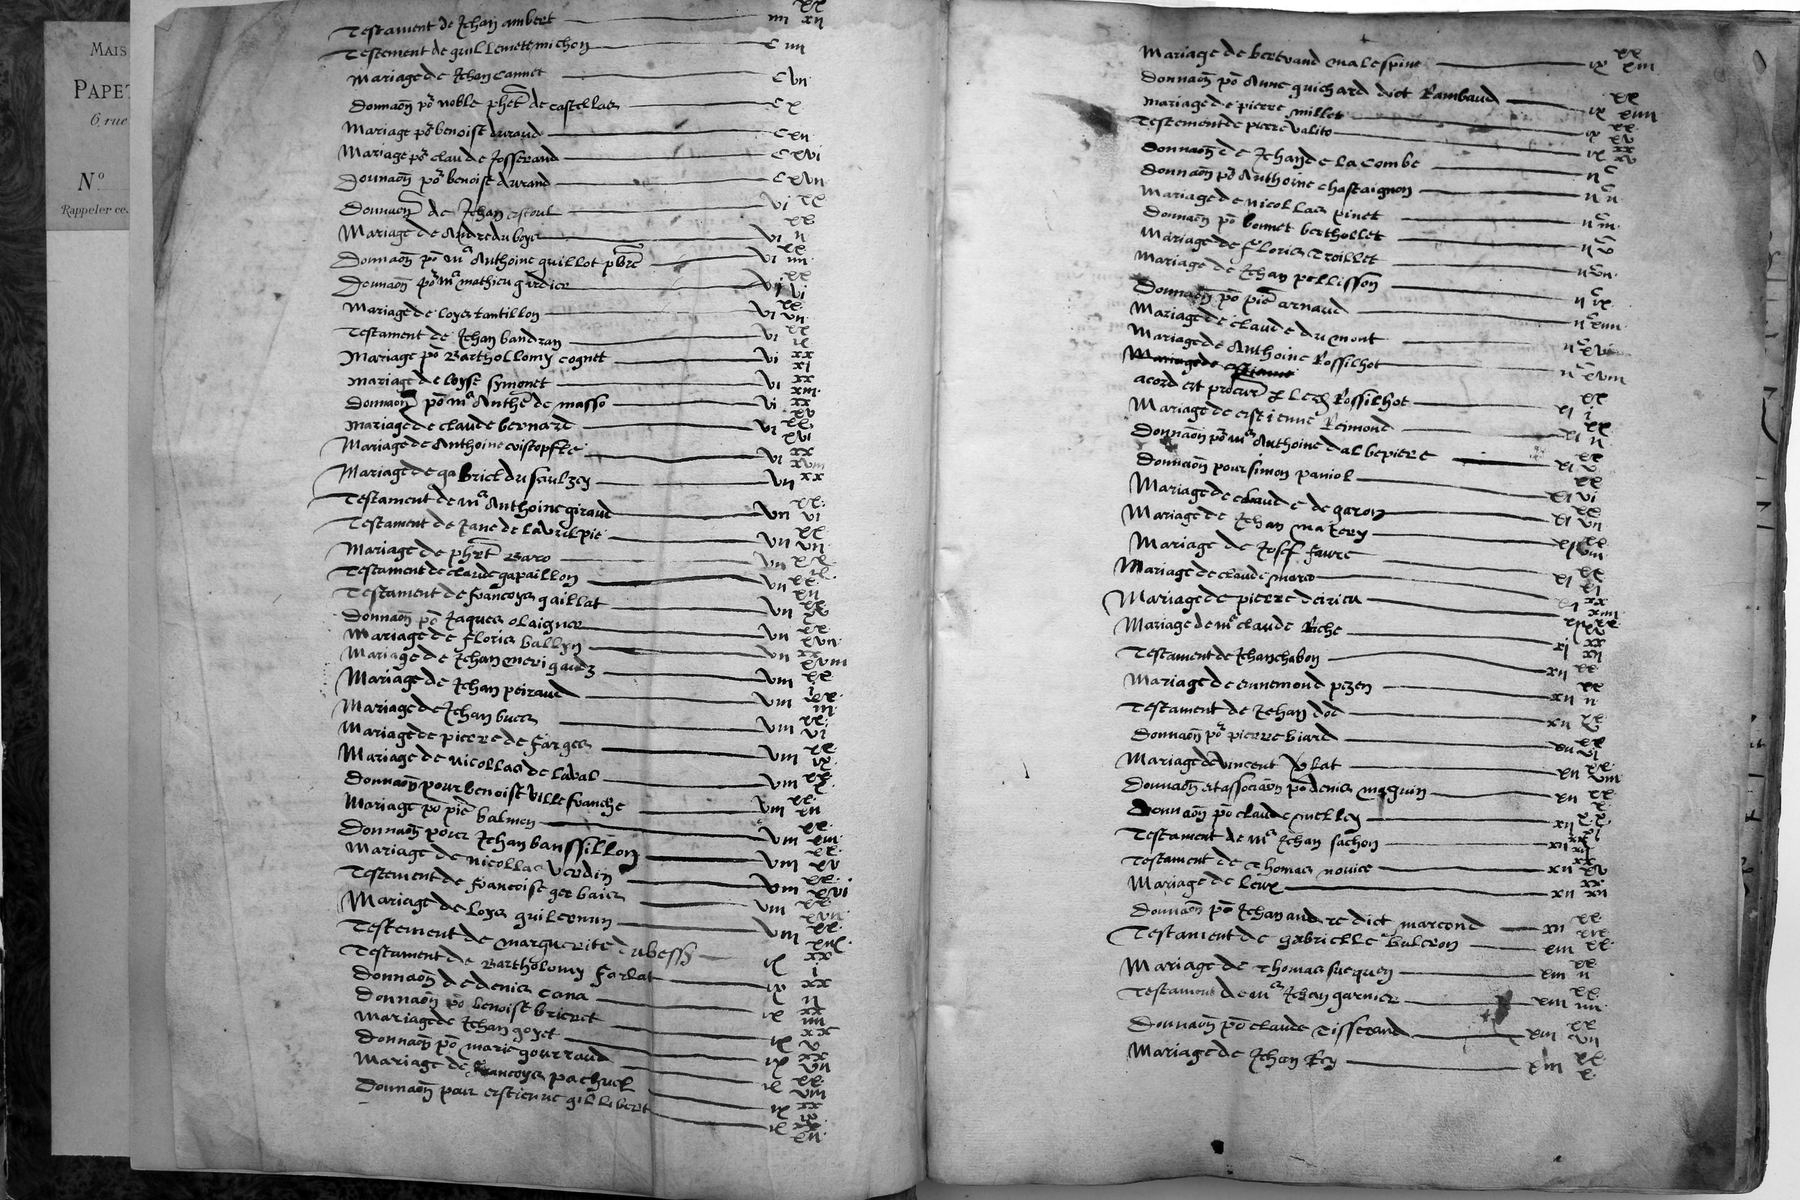 MAIS
PAPET
6, rue
N°
Rappeler ce
Testament de Jehan ambert iiii xx xii
Testement de guillemete michon C iiii
Mariage de Jehan Cannet C vii
Donnaon po noble phet de castellas C x
Mariage po benoist durand C xii
Mariage po claude Josserand C xvi
Donnaon po benoist durand C xvii
Donnaon de Jehan vi xx
Mariage de Andre du boys vi xx ii
Donnaon po m Anthoine guillot pbre vi xx iiii
Donnaon po m mathieu gardier vi xx vi
Mariage de loys tantillon vi xx vii
Testament de Jehan bandran vi xx ix
Mariage po Barthollomy cognet vi xx xi
Mariage de loyse symonet vi xx xiii
Donnaon po m Anthe de masso vi xx xv
Mariage de claude bernard vi xx xvi
Mariage de Anthoine vi xx xviii
Mariage de gabriel du saulzey vii xx
Testament de m Anthoine giraud vii xx vi
Testament de Jane de vii xx vii
Mariage de phet Baro vii xx ix
Testament de claude gapaillon vii xx xii
Testament de francoys gaillat vii xx xv
Donnaon po Jaques olaignier vii xx xvii
Mariage de floris ballyn vii xx xviii
Mariage de Jehan merigaudz viii xx i
Mariage de Jehan peiraud viii xx iii
Mariage de Jehan buer viii xx vi
Mariage de pierre de farges viii xx ix
Mariage de nicollas de laval viii xx x
Donnaon pour benoist villefranche viii xx xii
Mariage po pie balmen viii xx xiii
Donnaon pour Jehan banssillon viii xx xv
Mariage de nicollas verdin viii xx xvi
Testement de francoise gerbaix viii xx xvii
Mariage de loys guilermin viii xx xix
Testement de marguerite dubessy ix xx i
Testament de Bartholomy farlat ix xx ii
Donnaon de denis cana ix xx iiii
Donnaon po benoist brieret ix xx v
Mariage de Jehan goyet ix xx vii
Donnaon po marie gourraud ix xx viii
Mariage de francoys pachuel ix xx ix
Donnaon pour estienne gillibert ix xx xii
Mariage de bertrand malespine ix xx xiii
Donnaon po Anne guichard dict Rambaud ix xx xiiii
Mariage de pierre millet ix xx xv
Testement de pierre valito ix xx xv
Donnaon de Jehan de la combe ii C
Donnaon po Anthoine chastaignon ii C ii
Mariage de nicollas pinet ii C iii
Donnaon po bonnet berthollet ii C v
Mariage de floris Troillet ii C vii
Mariage de Jehan pellisson ii C ix
Donnaon po pie arnaud ii C xiii
Mariage de claude du mont ii C xvi
Mariage de Anthoine Rossilhot ii C xviii
Mariage de estienne
acord et procur Rossilhot xi xx i
Mariage de estienne Reimond xi xx ii
Donnaon po m Anthoine dalbepiere xi xx v
Donnaon pour simon paniol xi xx vi
Mariage de claude de garon xi xx vii
Mariage de Jehan matery xi xx viii
Mariage de Josef faure xi xx xi
Mariage de claude marco xi xx xiii
Mariage de pierre deirieu xi xx xv
Mariage de m claude Riche xi xx xii
Testament de Jehan chabon xii xx
Mariage de ennemond pezen xii xx ii
Testament de Jehan dod xii xx
Donnaon po pierre biard xii xx vi
Mariage de vincent plat xii xx viii
Donnaon et assosiaon po denis maguin xii xx x
Donnaon po claude melley xii xx
Testament de m Jehan sachon xii xx
Testament de Thomas novice xii xx xv
Mariage de xii xx xvii
Donnaon po Jehan andre dict marcond xii xx xix
Testament de gabrielle Baleron xiii xx
Mariage de Thomas sucquen xiii xx ii
Testament de m Jehan garnier xiii xx iiii
Donnaon po claude Tisserand xiii xx vii
Mariage de Jehan Rey xiii xx x